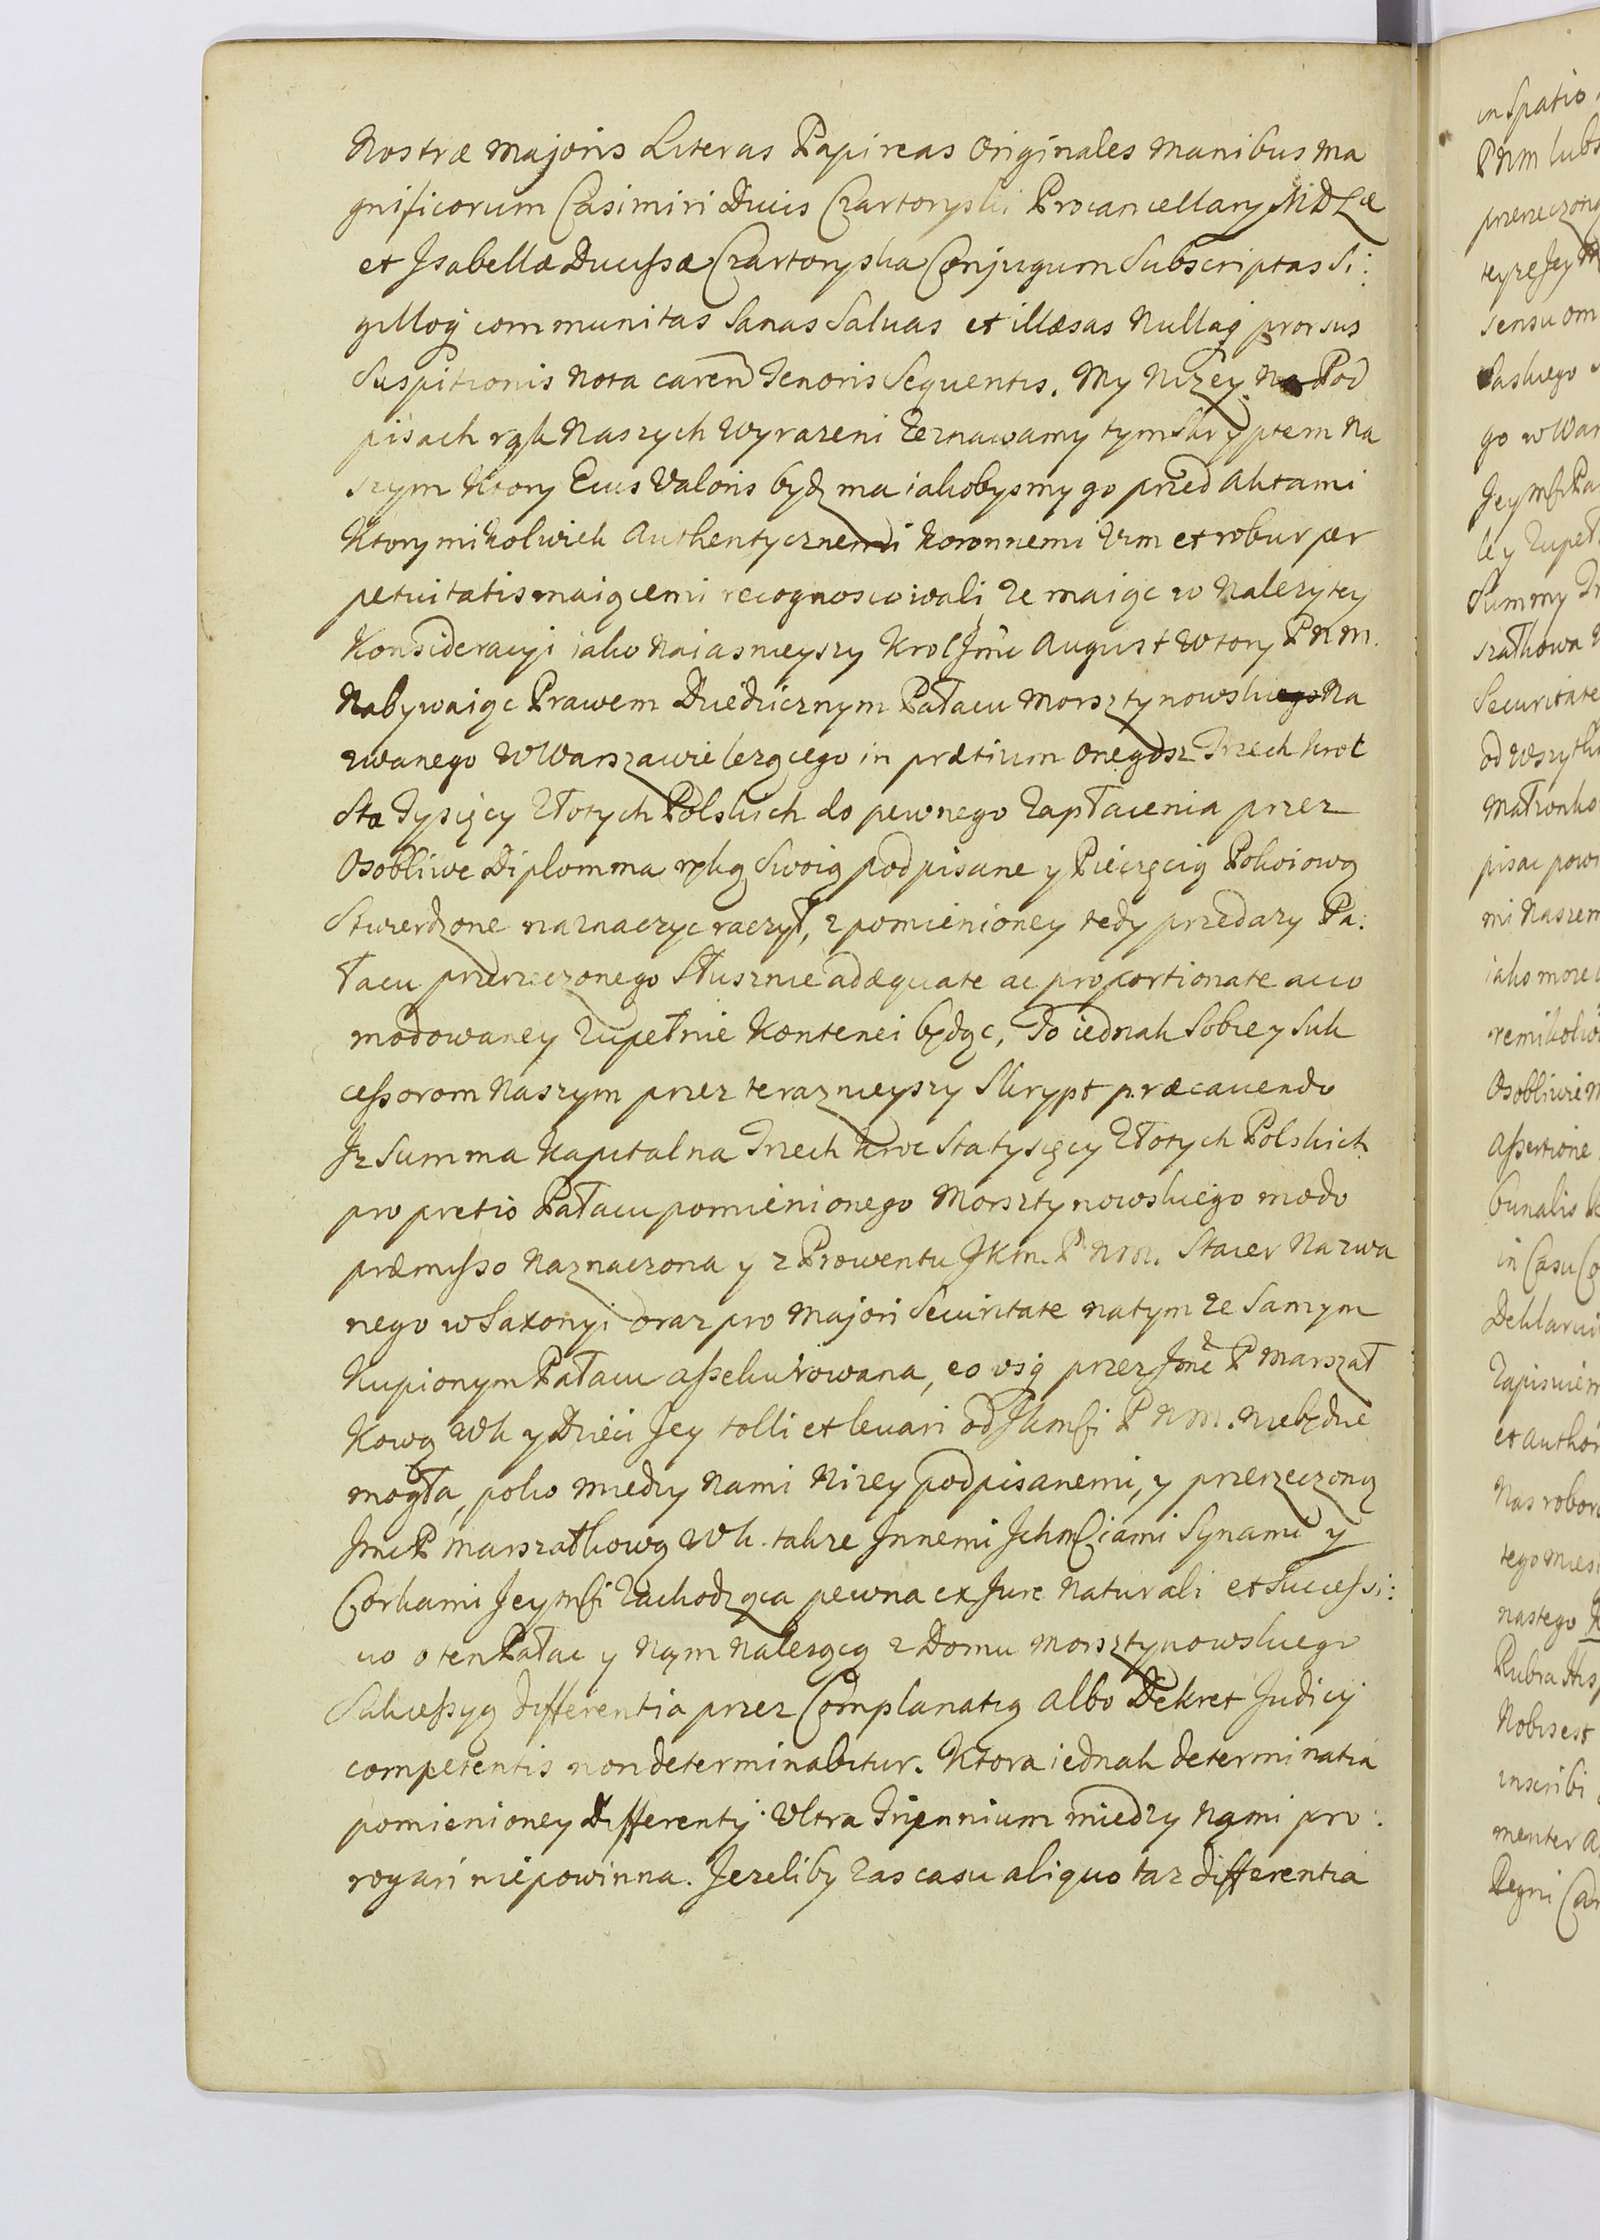 Nostræ Majoris Literas Papireas Originales Manibus Ma
gnificorum Casimiri Ducis Czartoryski Procancellary M D L æ
et Isabellæ Ducissæ Czartoryska Conjugum Subscriptas Si:
gilloq̃ communitas Sanas Saluas et illæsas Nullaq̃ prorsus
Suspitionis Nota caren Tenoris Sequentis. My Nizey Na Pod
pisach rąk Naszych Wyrazeni Zeznawamy tym Skryptem Na
szym Ktory Eius Valoris bydz ma iakobysmy go przed Aktami
Ktorymikolwiek Authentycznemi Koronnemi Vim et robur per
petuitatis maiącemi recognoscowali, ze maiąc w Nalezytey
Konsideracyi iako Naiasnieyszy Krol Jmć August Wtory P N M.
Nabywaiąc Prawem Dziedzicznym Pałacu Morsztynowskiego Na
zwanego w Warszawie lezącego in prætium onegosz Trzech Kroć
Sta Tysięcy Złotych Polskich do pewnego Zapłacenia przez
Osobliwe Diplomma ręką Swoią podpisane y Pieczęcią Pokoiową
Stwierdzone naznaczyc raczył, z pomienioney tedy przedazy Pa:
łacu przerzeczonego Słusznie adæquate ac proportionate acco
modowaney Zupełnie Kontenci będąc, To iednak Sobie y Suk
cessorom Naszym przez teraznieyszy Skrypt præcauendo
Jz Summa Kapitalna Trzech Kroc Sta tysięcy Złotych Polskich
pro pretio Pałacu pomienionego Morsztynowskiego modo
præmisso Naznaczona y z Prowentu JKM. P N M. Stacer Nazwa
nego w Saxonyi oraz pro Majori Securitate natym ze Samym
Kupionym Pałacu assekurowana, eo vsq̃ przez Jmć P Marszał
Kową Wk y Dzieci Jey tolli et leuari od JKMsći P N M. niebędzie
mogła, poko miedzy Nami Nizey podpisanemi, y przerzeczoną
Jmć P Marszałkową W k. takze Jnnemi JchmSciami Synami y
Corkami JeyMsći Zachodząca pewna ex Jure Naturali et Successi:
uo o ten Pałac y Nąm Nalezącą z Domu Morsztynowskiego
Sukcessyą differentia przez Complanatią albo Dekret Judicij
competentis non determinabitur. Ktora iednak determinatia
pomienioney Differentij Vltra Triennium miedzy Nąmi pro:
rogari niepowinna. Jezeliby Zas casu aliquo taz differentia